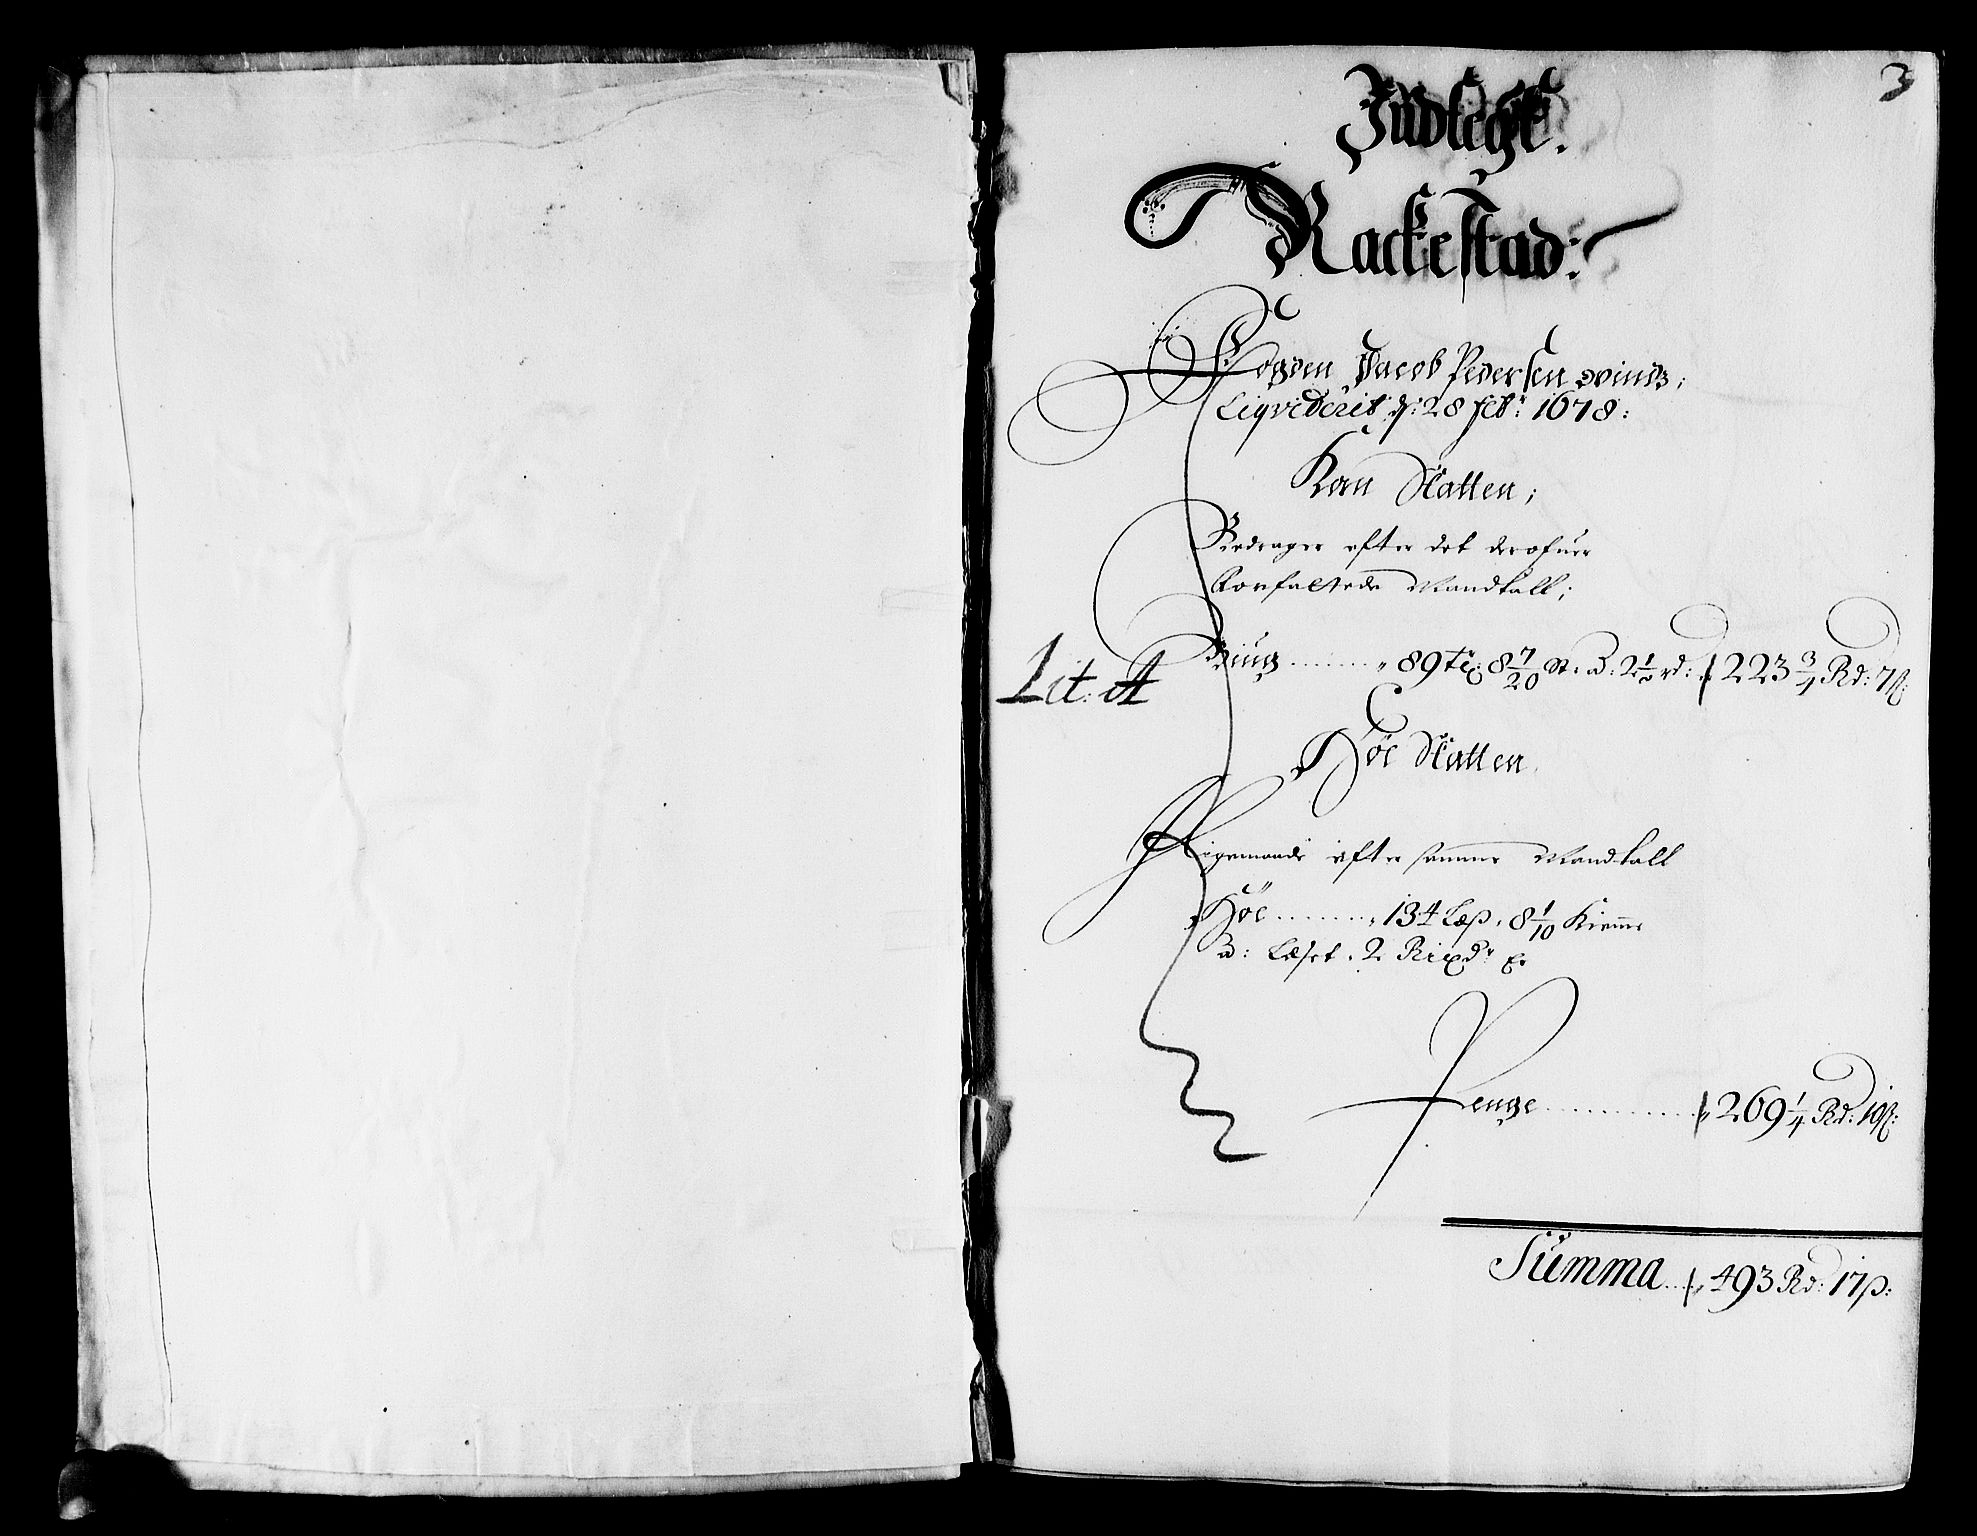 3
Indtegt.
Rackestad:
Fogden Jacob Pedersen
Liqviderit d: 28 febr: 1678:
Korn Skatten;
Bedrager efter det derofuer
Forfattede Mandtall;
Lit: A
Biug ........ 89 tr: 8 7/20 st. a: 2 1/2 rd: 223 3/4 Rd: 7ß:
Høe Skatten
Ligemaade efter samme Mandtall
Høe ........ 134 Læs, 8 1/10 Kierme
a: Læset. 2 Rixdr er
Penge ............ 269 1/4 Rd: 10ß:
Summa ... 493 Rd: 17ß: